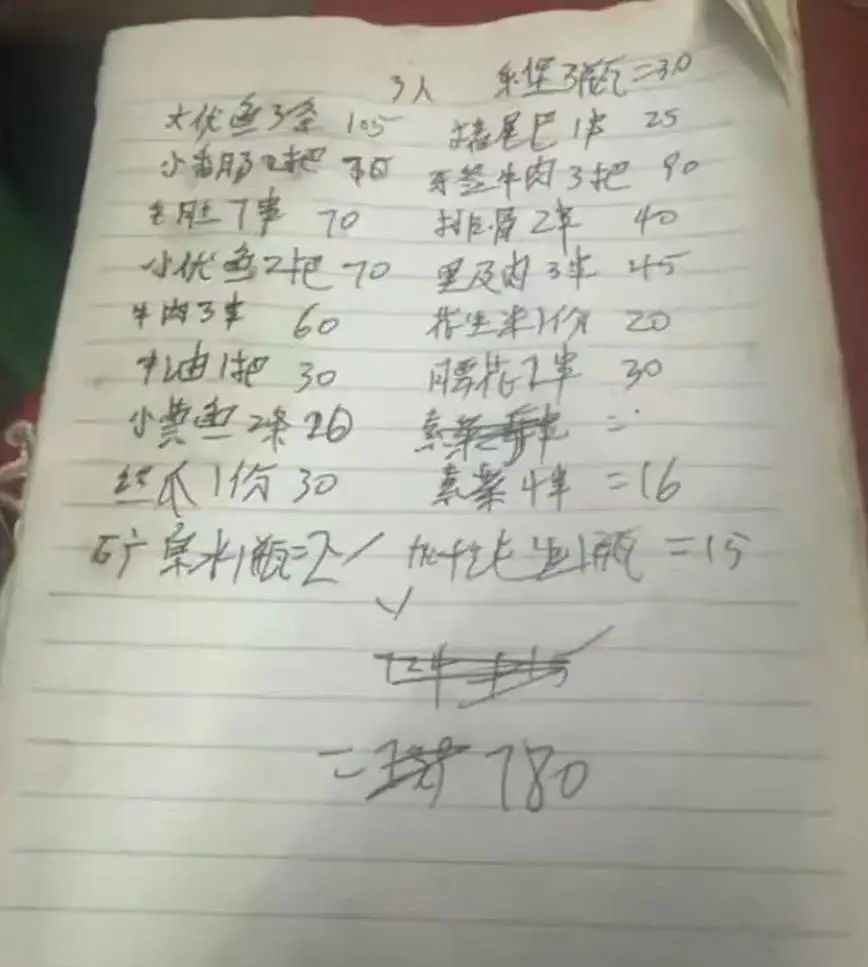 3人 乐堡3瓶=30
大优鱼3条 105 猪尾巴1串 25
小香肠2把 牙签牛肉3把 90
毛肚7串 70 排骨2串 40
小优鱼2把 70 里及肉3串 45
牛肉3串 60 花生米1份 20
牛油1把 30 腰花2串 30
小黄鱼2条 26 素菜 =
丝瓜1份 30 素菜4串 =16
矿泉水1瓶=2 花生 1瓶 =15
= 780